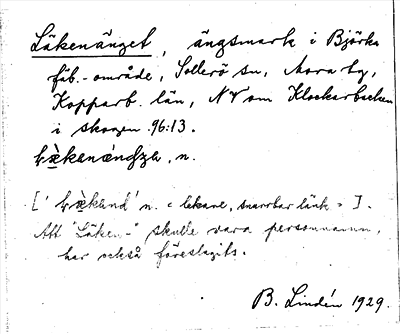 Läkenänget, ängsmark i Björka
fäb.-område, Sollerö sn, Mora tg,
Kopparb. län, NV om Klockarbacken
i skogen. 96:13.
n.
[' n. = lekare, snarrbar länk = ].
Att "Läken-" skulle vara personnamn,
har också föreslagits.
B. Lindén 1929.